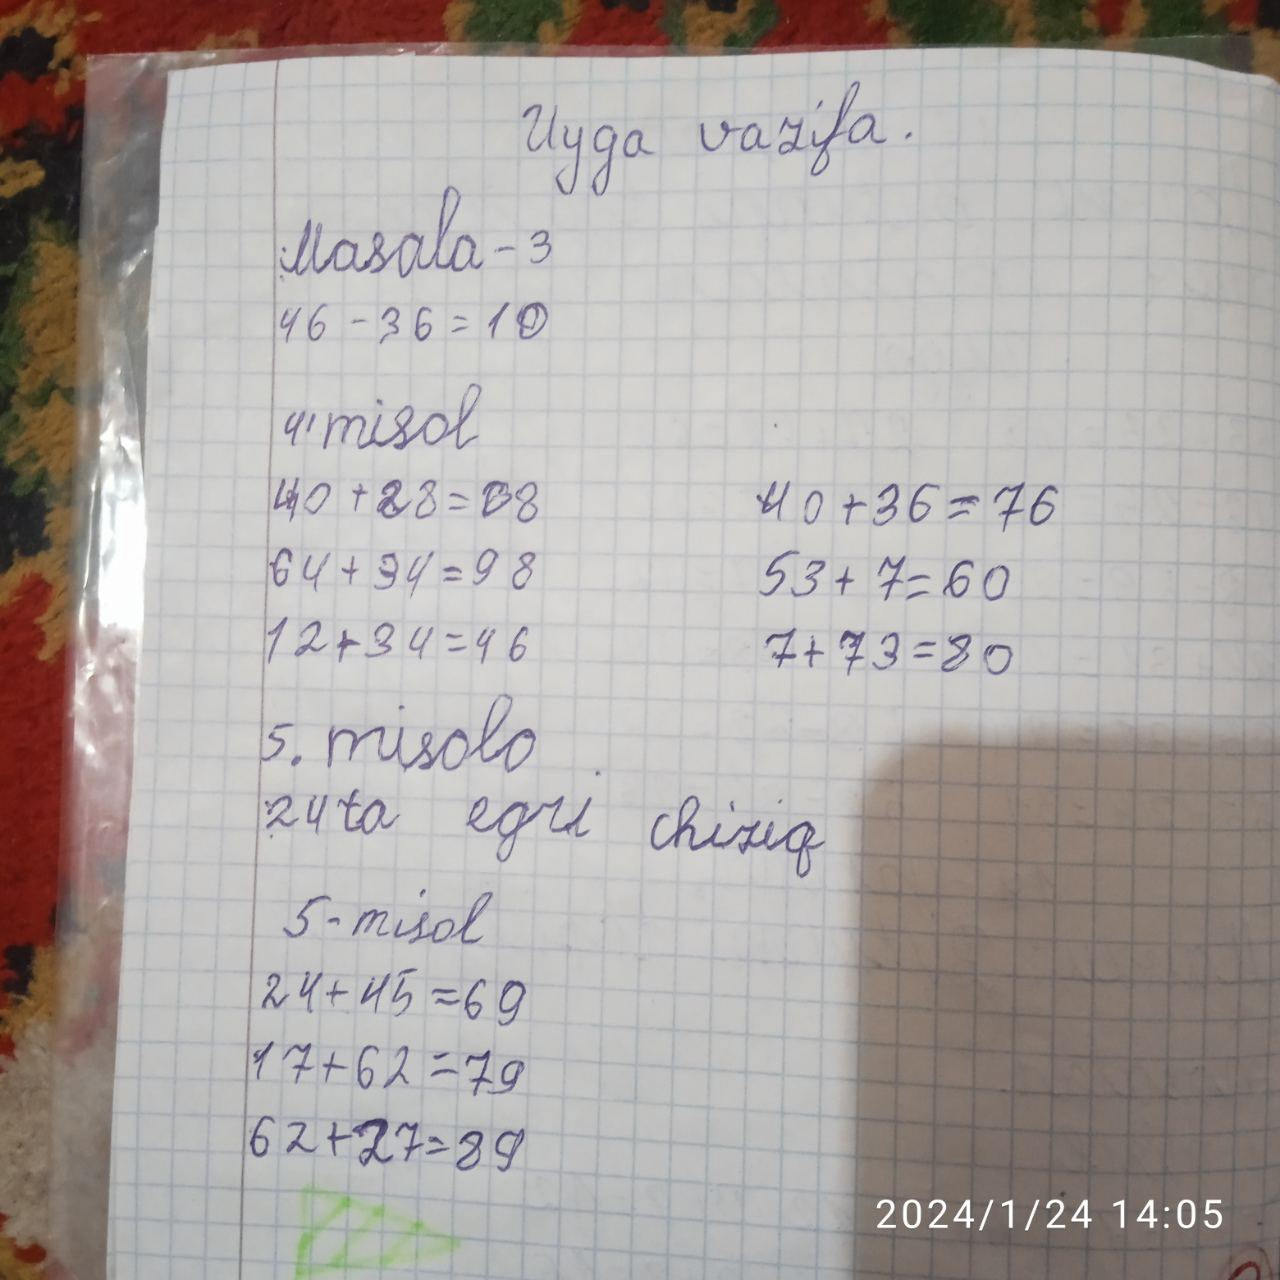 Uyga vazifa.
Masala - 3
46 - 36 = 10
4. misol
40 + 28 = 68
40 + 36 = 76
64 + 34 = 98
53 + 7 = 60
12 + 34 = 46
7 + 73 = 80
5. misolo
24 ta egri chiziq
5 - misol
24 + 45 = 69
17 + 62 = 79
62 + 27 = 89
2024/1/24 14:05